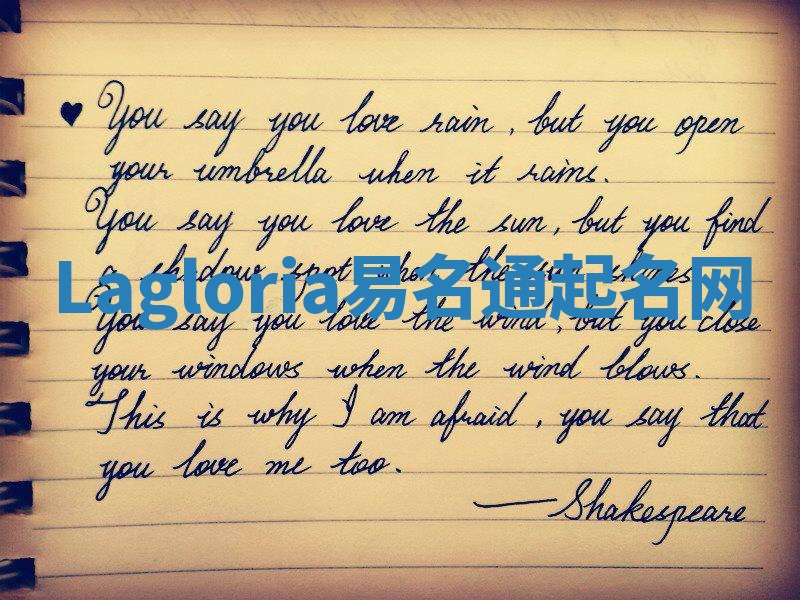 ♥ You say you love rain, but you open
your umbrella when it rains.
You say you love the sun, but you find
a shadow spot when the sun shines.
Lagloria易名通起名网
You say you love the wind, but you close
your windows when the wind blows.
This is why I am afraid, you say that
you love me too.
—Shakespeare